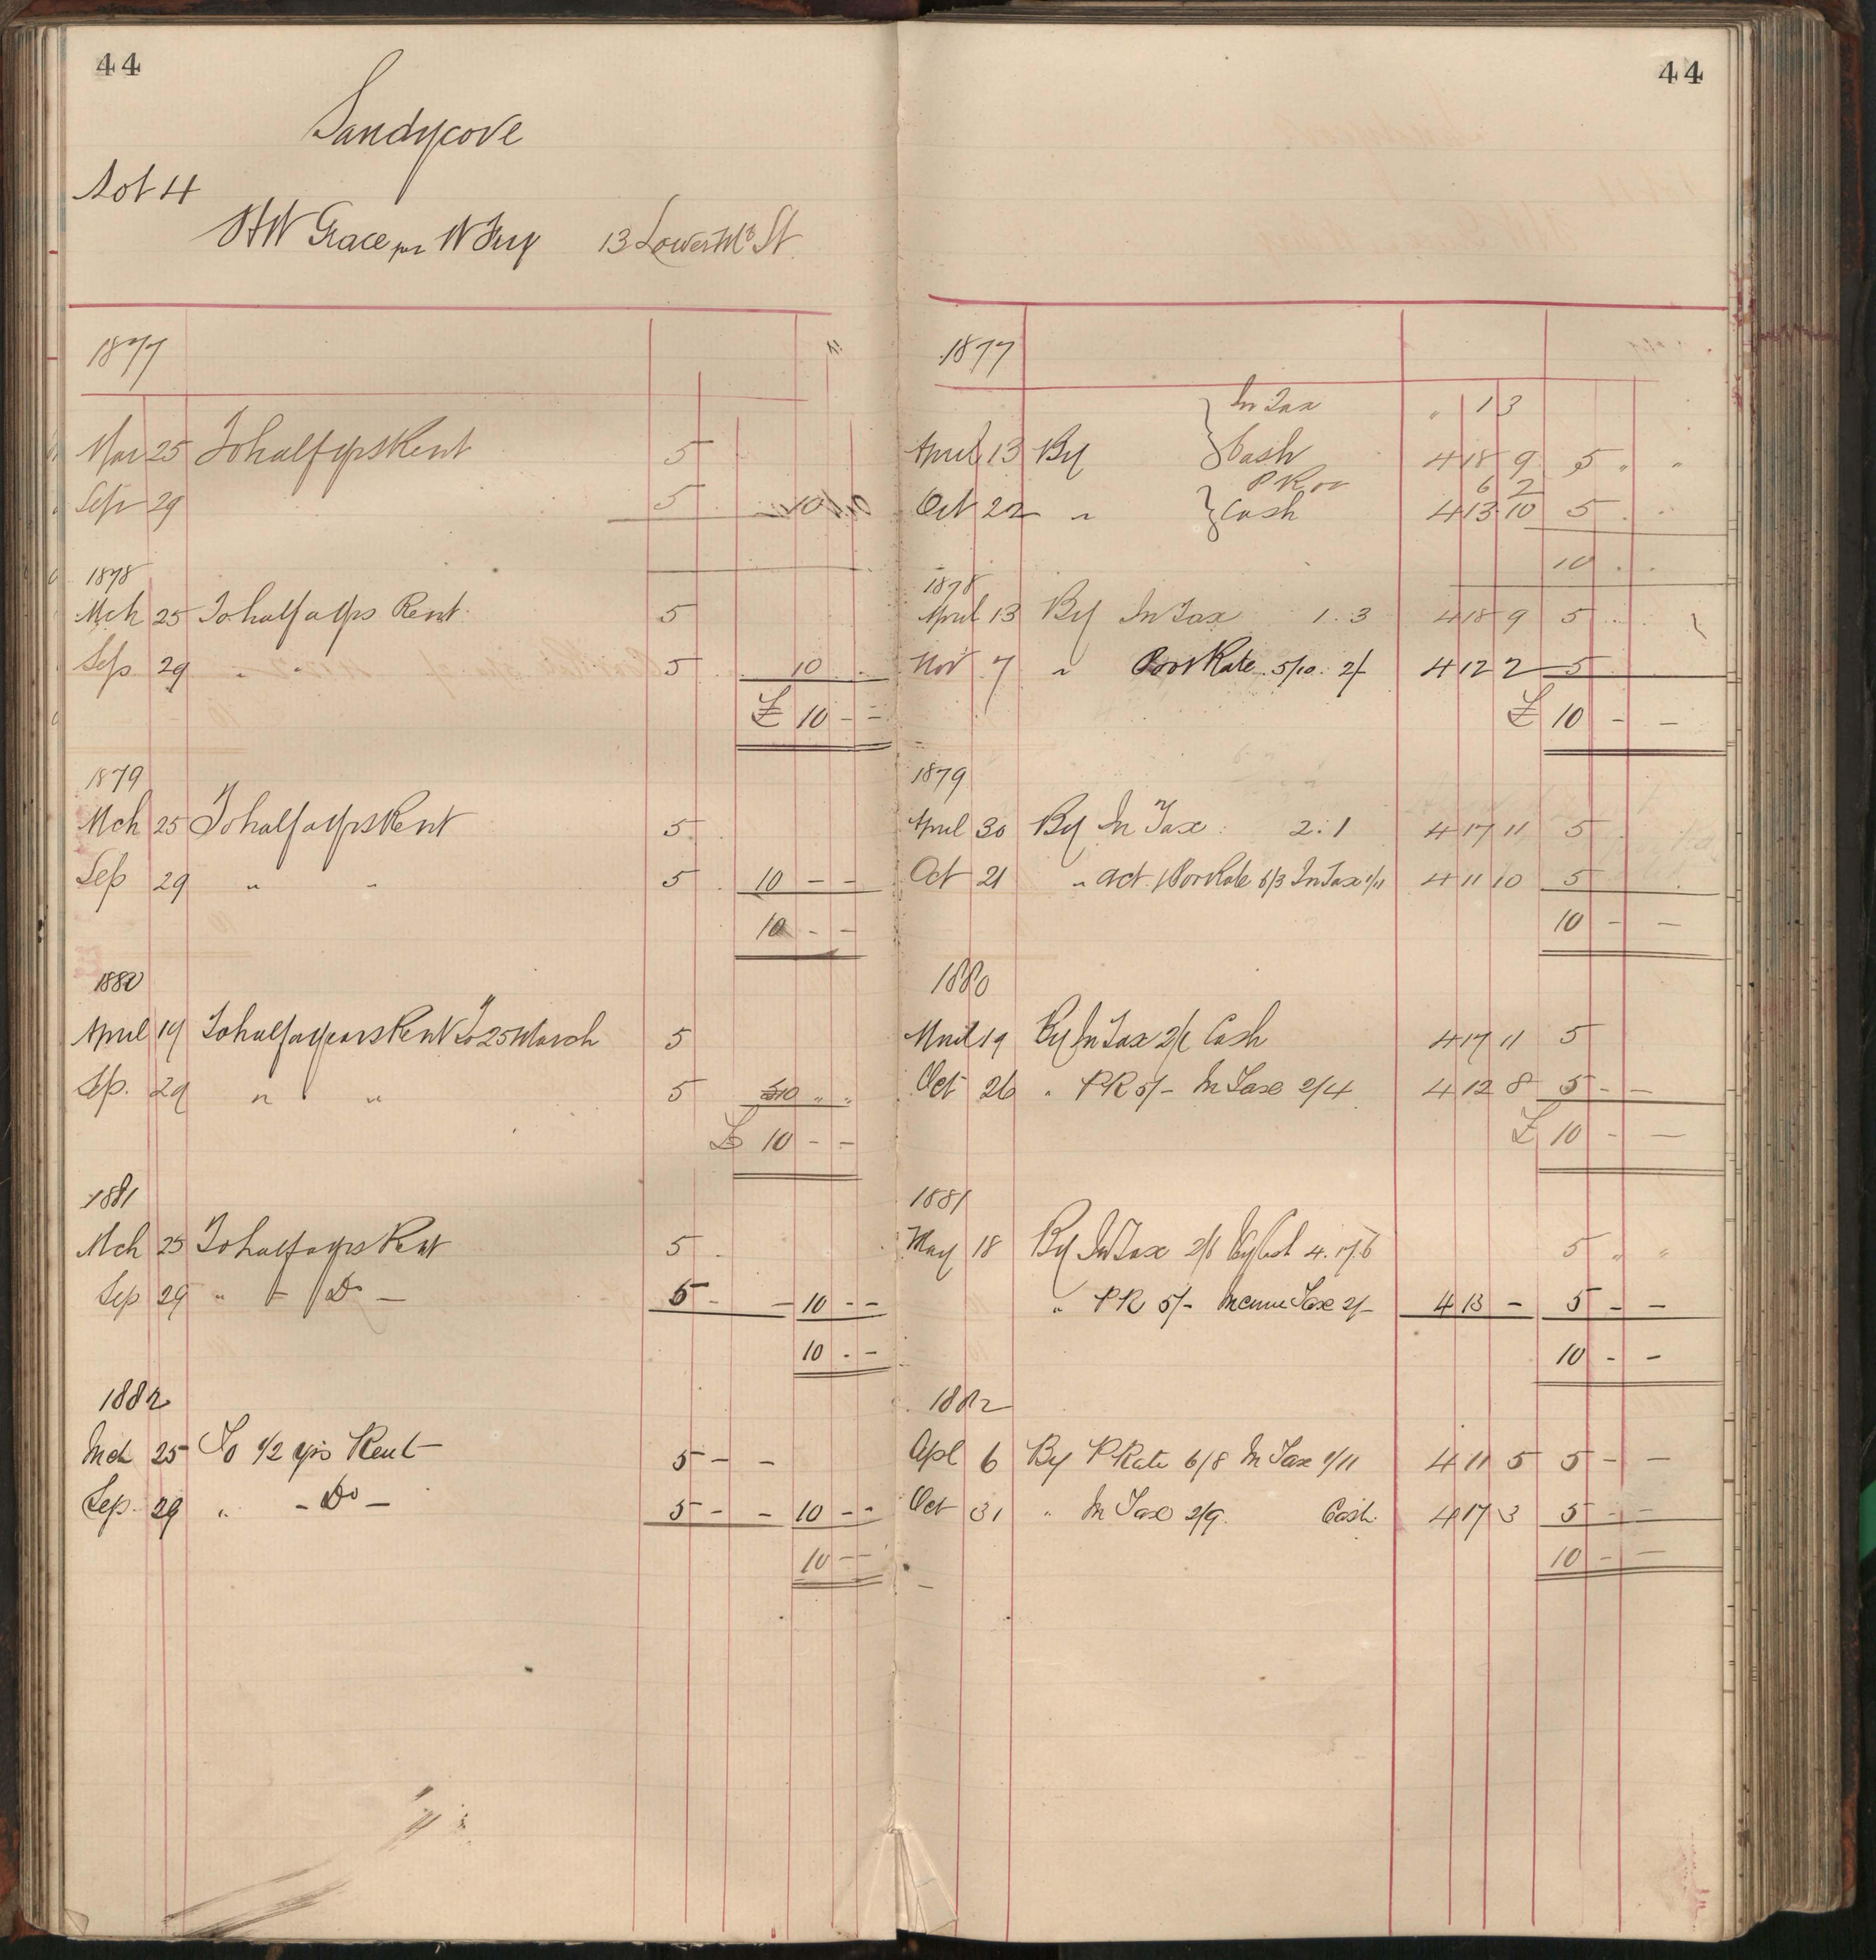 44
Sandycove
Lot 4
H W Grace per W Fry 13 Lower Mt St.
1877
Mar 25 To half yrs Rent 5
Sep 29 5 10
1878
Mch 25 To half a yrs Rent. 5
Sep 29 " " 5 10
£ 10 - -
1879
Mch 25 To half a yrs Rent 5
Sep 29 " " 5 10 - -
10 - -
1880
April 19 To half a years Rent to 25 March 5
Sep. 29 " " 5 10 " "
£ 10 - -
1881
Mch 25 To half a yrs Rent 5
Sep 29 " Do - 5 - - 10 - -
10 - -
1882
Mch 25 To 1/2 yrs Rent 5 - -
Sep. 29 " - Do - 5 - - 10 - -
10 - -
44
1877
In Tax " 1 3
April 13 By Cash 4 18 9 5 " "
P R 6 2
Oct 22 " Cash 4 13 10 5
10 . .
1878
April 13 By In Tax 1.3 4 18 9 5
Nov 7 " Poor Rate 5/10. 2/ 4 12 2 5
£ 10 - -
1879
April 30 By In Tax. 2.1 4 17 11 5
Oct 21 " act. Poor Rate 6/3 In Tax 1/11 4 11 10 5
10 - -
1880
19 By In Tax 2/1 Cash 4 17 11 5
Oct 26 " PR 5/- In Tax 2/4 4 12 8 5 - -
£ 10 - -
1881
May 18 By In Tax 2/6 By Cash 4.17.6 5 " "
" PR 5/- Income Tax 2/- 4 13 - 5 - -
10 - -
1882
Apl 6 By P Rate 6/8 In Tax 1/11 4 11 5 5 - -
Oct 31 " In Tax 2/9. Cash 4 17 3 5 - -
10 - -